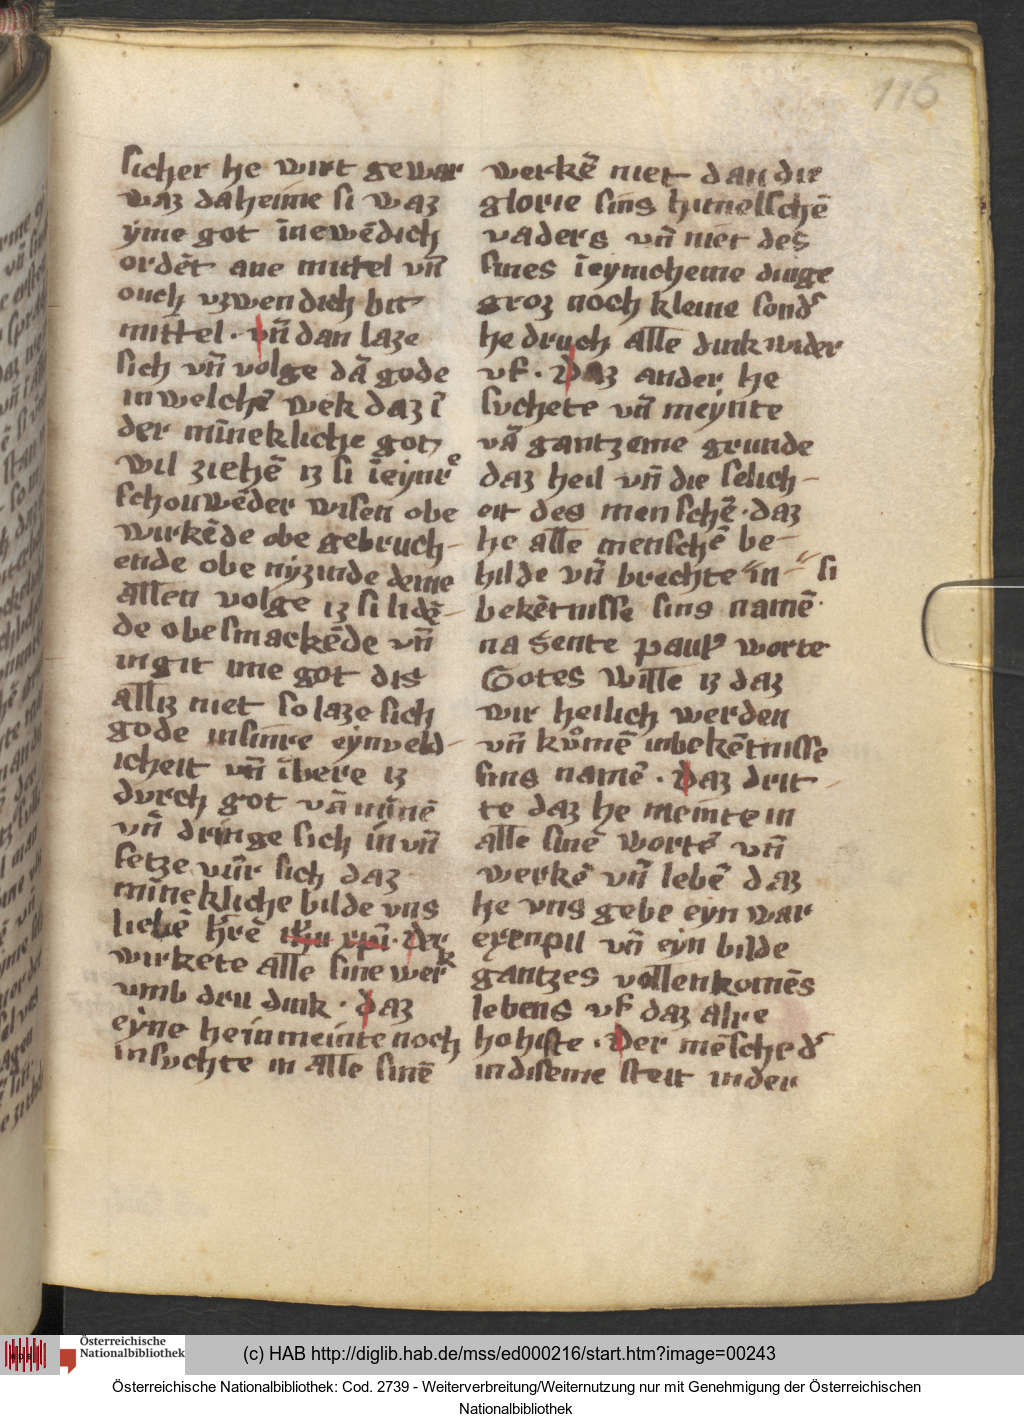 116
sicher he wirt gewar
waz daheime si waz
ẏme got īnewēdich
ordēt ane mittel vn̄
ouch vzwendich bit
mittel · vn̄ dan laze
sich vn̄ volge dā gode
in welchē wek daz ī
der mīnekliche got
wil ziehē iz si īeẏnre
schouwēder wisen obe
wirkēde obe gebruch-
ende obe nyzinde deme
allen volge iz si lidē-
de obe smackēde vn̄
ingit ime got dis
alliz niet so laze sich
gode insinre eynveld-
icheit vn̄ ībere iz
durch got vā mīnē
vn̄ dringe sich in vn̄
setze vur̄ sich daz
mīnekliche bilde vns
liebē hr̄rē ih̄u xp̄i · der
wirkete alle sine werk
vmb dru dink · daz
eyne he in meinte noch
in suchte in alle sinē
werkē niet dan die
glorie sins himelschē
vaders vn̄ niet des
sines īeynicheme dinge
groz noch kleine sond'
he druch alle dink wider
vf · Daz ander he
suchete vn̄ meynte
vā gantzeme grunde
daz heil vn̄ die selich-
eit des menschē · daz
he alle menschē be-
hilde vn̄ brechte in - si
bekētnisse sins namē
na sente pauls worte
Gotes wille iz daz
wir heilich werden
vn̄ kůmē inbekētnisse
sins namē · Daz drit-
te daz he meinte in
alle sinē wortē vn̄
werkē vn̄ lebē daz
he vns gebe eyn war
exenpil vn̄ eyn bilde
gantzes vollenkomēs
lebens vf daz alre
hohiste · Der mēsche d'
indiseme steit inder
Österreichische
Nationalbibliothek
(c) HAB http://diglib.hab.de/mss/ed000216/start.htm?image=00243
Österreichische Nationalbibliothek: Cod. 2739 - Weiterverbreitung/Weiternutzung nur mit Genehmigung der Österreichischen
Nationalbibliothek